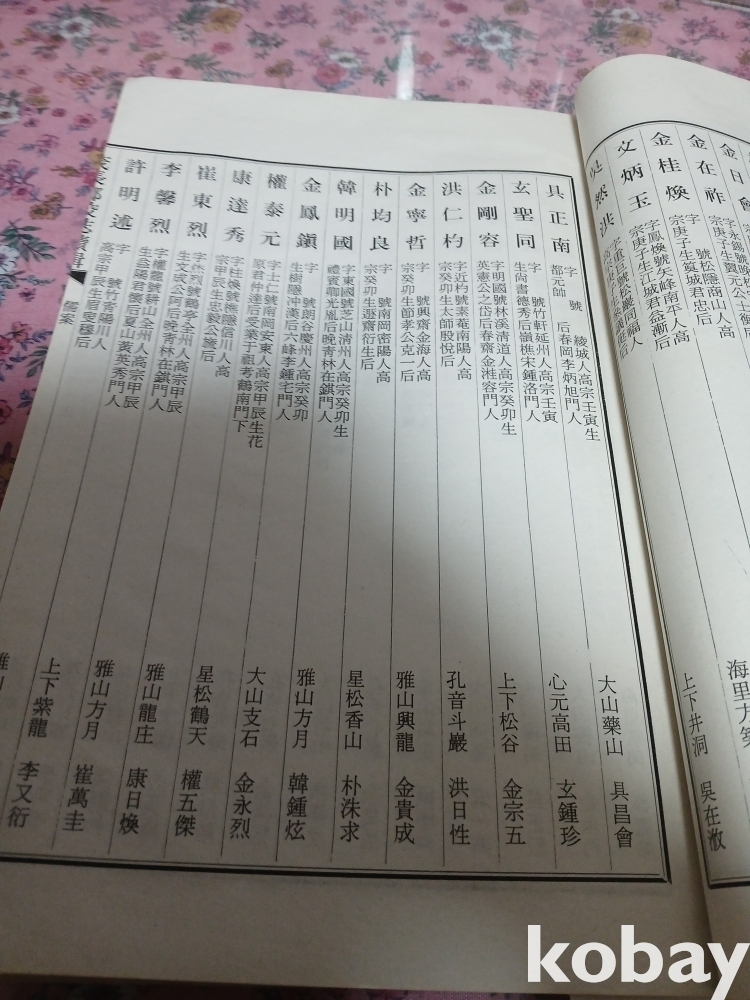 金日
海里方築
金在祚
號松隱商山人高
宗庚子生冀城君忠后
上下井洞 吳在澈
金桂煥
字鳳煥號矢峰南平人高
宗庚子生江城君益漸后
文炳玉
具正南
字 號 綾城人高宗壬寅生
都元帥 后春岡李炳旭門人
大山藥山 具昌會
玄聖同
字 號竹軒延州人高宗壬寅
生尙書德秀后嶺樵宋鍾洛門人
心元高田 玄鍾珍
金剛容
字明國號林溪清道人高宗癸卯生
英憲公之岱后春齋金溎容門人
上下松谷 金宗五
洪仁杓
字近杓號素菴南陽人高
宗癸卯生太師殷悅后
孔音斗巖 洪日性
金寧哲
字 號興齋金海人高
宗癸卯生節孝公克一后
雅山興龍 金貴成
朴均良
字 號南岡密陽人高
宗癸卯生遯齋衍生后
星松香山 朴洙求
韓明國
字東國號芝山清州人高宗癸卯生
禮賓卿光胤后晚青林在鎮門人
雅山方月 韓鍾炫
金鳳鎭
字 號朗谷慶州人高宗癸卯
生樹隱冲漢后六峰李鍾宅門人
大山支石 金永烈
權泰元
字士仁號南岡安東人高宗甲辰生花
原君仲達后受業于祖考鶴南門下
星松鶴天 權五傑
康達秀
字柱煥號撫隱信川人高
宗甲辰生忠毅公 后
雅山龍庄 康日煥
崔東烈
字 烈號鶴亭全州人高宗甲辰
生文成公阿后晚青林在鎮門人
雅山方月 崔萬圭
李馨烈
字權 號耕山全州人高宗甲辰
生益陽君懷后夏山黃英秀門人
上下紫龍 李又衍
許明述
字 號竹 陽川人
高宗甲辰生 后
儒案